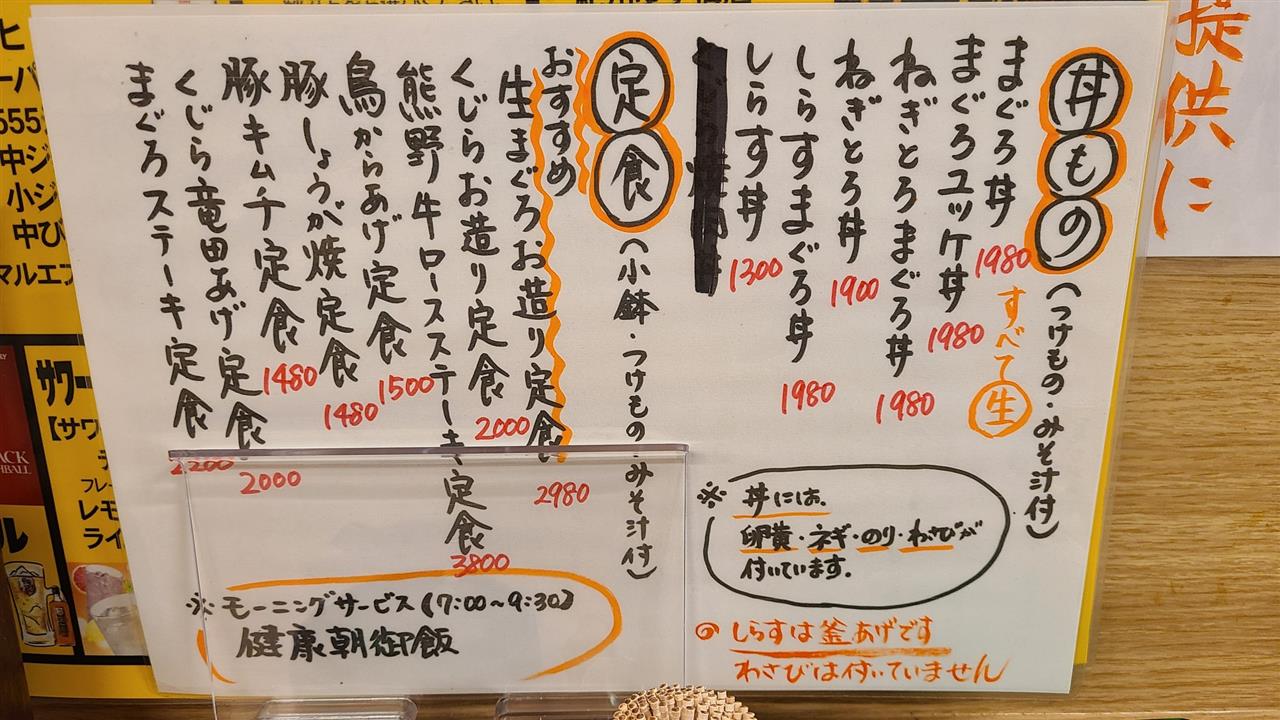 提供に
丼もの(つけもの・みそ汁付)
すべて生
まぐろ丼 1980
まぐろユッケ丼 1980
ねぎとろまぐろ丼 1980
ねぎとろ丼 1900
しらすまぐろ丼 1980
しらす丼 1300
※丼には、
卵黄・ネギ・のり・わさびが
付いています.
しらすは釜あげです
わさびは付いていません
定食(小鉢・つけもの・みそ汁付)
おすすめ
生まぐろお造り定食 2980
くじらお造り定食 2000
熊野牛ロースステーキ定食 3800
鳥からあげ定食 1500
豚しょうが焼定食 1480
豚キムチ定食 1480
くじら竜田あげ定食 2000
まぐろステーキ定食 2200
※モーニングサービス(7:00~9:30)
健康朝御飯
中ジ
小ジ
中び
マルエフ
サワー
【サワ
フレー
レモ
ライ
ル